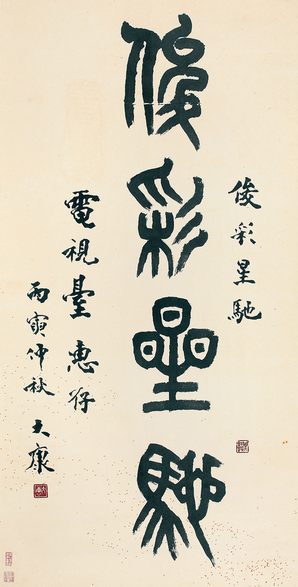 俊彩星馳
俊彩星馳
電視臺惠存
丙寅仲秋大康